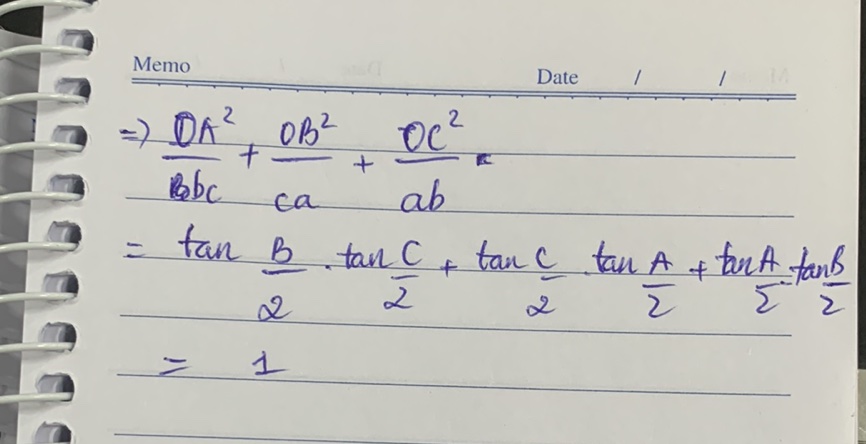 Memo Date / /
=> OA²/bc + OB²/ca + OC²/ab
= tan B/2 . tan C/2 + tan C/2 . tan A/2 + tan A/2 . tan B/2
= 1